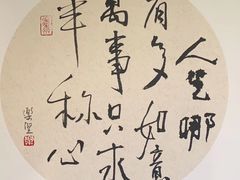 人生哪
有多如意
萬事只求
半称心